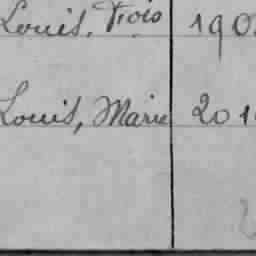 Louis, Frois 190
Louis, Marie 201